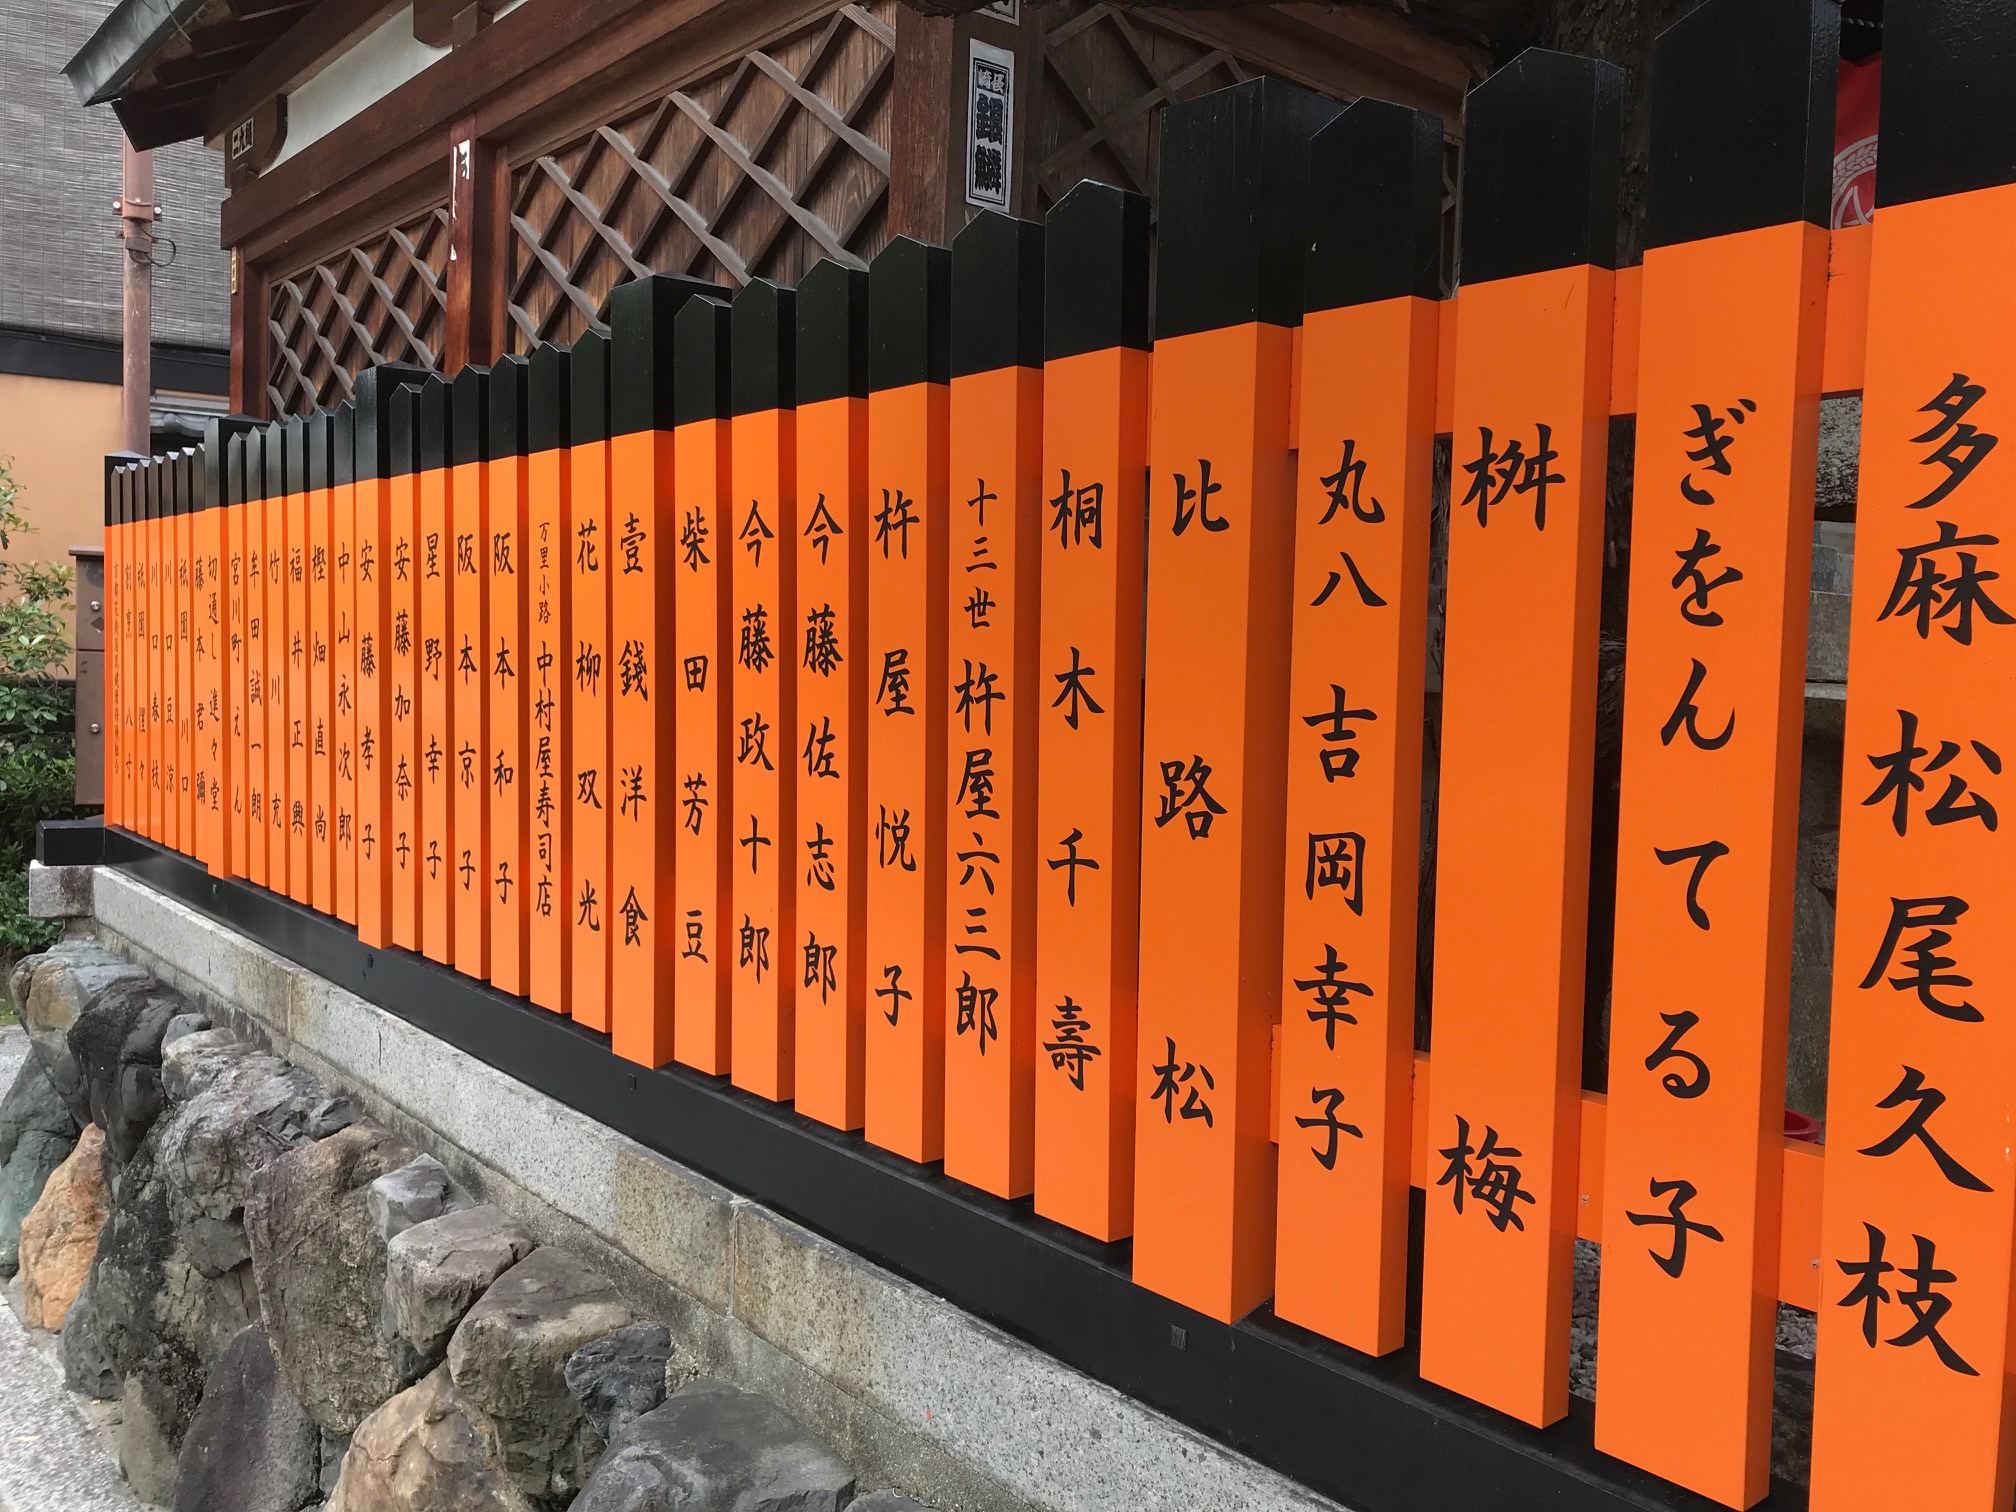 多麻 松尾久枝
ぎをん てる子
桝梅
丸八 吉岡幸子
比路松
桐木千壽
十三世 杵屋六三郎
杵屋悦子
今藤佐志郎
今藤政十郎
柴田芳豆
壹錢洋食
花柳双光
万里小路 中村屋寿司店
阪本和子
阪本京子
星野幸子
安藤加奈子
安藤孝子
中山永次郎
樫畑直尚
福井正興
竹川充
牟田誠一朗
宮川町 えん
切通し 進々堂
藤本君彌
祇園 川口
川口豆涼
川口春枝
祇園 㐂々
割烹 八寸